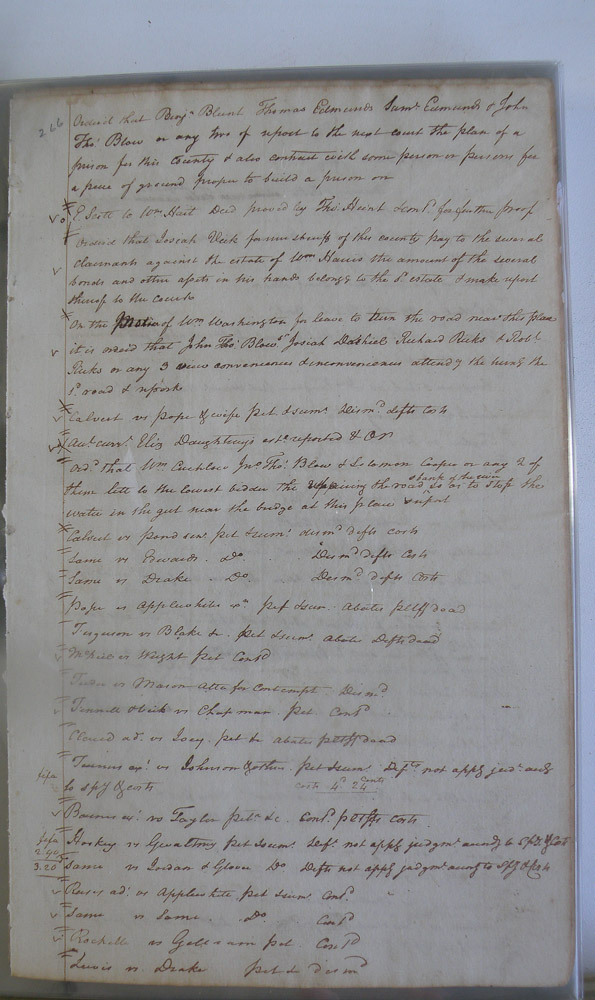 266
Ordered that Benjn Blunt Thomas Edmunds Saml Edmunds & John
Thos Blow or any two of report to the next court the plan of a
prison for this County & also contract with some person or persons for
a piece of ground proper to build a prison on
to Wm Hart Deed proved by Thos & contd for further proof
Ordered that Josiah Vick former sheriff of this county pay to the several
claimants against the estate of Wm Harris the amount of the several
bonds and other in his hands belongg to the sd estate & make report
thereof to the court
On the Motion of Wm Washington for leave to turn the road near this place
it is ordered that John Thos Blow Josiah Richard Ricks & Robt
Ricks or any 3 view conveniences & inconveniences attendg the turng the
sd road & report
Calvert vs pope & wife pet & sums Dismd defts costs
Eliz Daughtrys reported & OR
Ordd that Wm Jno Thos Blow & Solomon Cooper or any 2 of
them lett to the lowest bidder the the road & bank of the river so as to stop the
water in the gut near the bridge at this place & report
Calvert vs pond pet & sums dismd defts costs
Same vs Edwards Do Dismd defts costs
Same vs Drake Do Dismd defts costs
Pope vs Applewhite pet & sum abates pltff dead
Ferguson vs Blake & pet & sums abates Deft dead
vs Wright pet Contd
vs Mason atta for contempt Dismd
& Vick vs Chapman pet Contd
adr vs Ivey pet & abates pltff dead
fifa
exr vs Johnson & others pet & sums Defts not appg judt
to spy & costs costs 4d 24 cents
exr vs Taylor petn &c Contd pltffs costs
fifa
vs Gwaltney pet & sums Deft not appg judgmt accordg to & Cost
2.90
3.20
Same vs Jordan & Glover Do Defts not appg judgmt accordg to & Costs
adr vs Applewhite pet & sums Contd
Same vs Same Do Contd
Rochelle vs pet Contd
Lewis vs Drake pet & Dismd